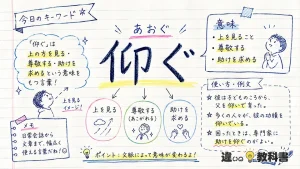 今日のキーワード
「仰ぐ」は
上の方を見る・
尊敬する・助けを
求めるという意味を
もつ言葉！
上を見る
イメージ！
メモ
日常会話から
文章まで、幅広く
使える言葉だね！
あおぐ
仰ぐ
上を見る
尊敬する
(あこがれる)
助けを
求める
ポイント：文脈によって意味が変わるよ！
意味
・上を見ること
・尊敬する
・助けを求める
使い方・例文
彼は子どものころから、
父を仰いで育った。
多くの人々が、彼の功績を
仰いでいる。
困ったときは、専門家に
助けを仰ぐのがよい。
教科書